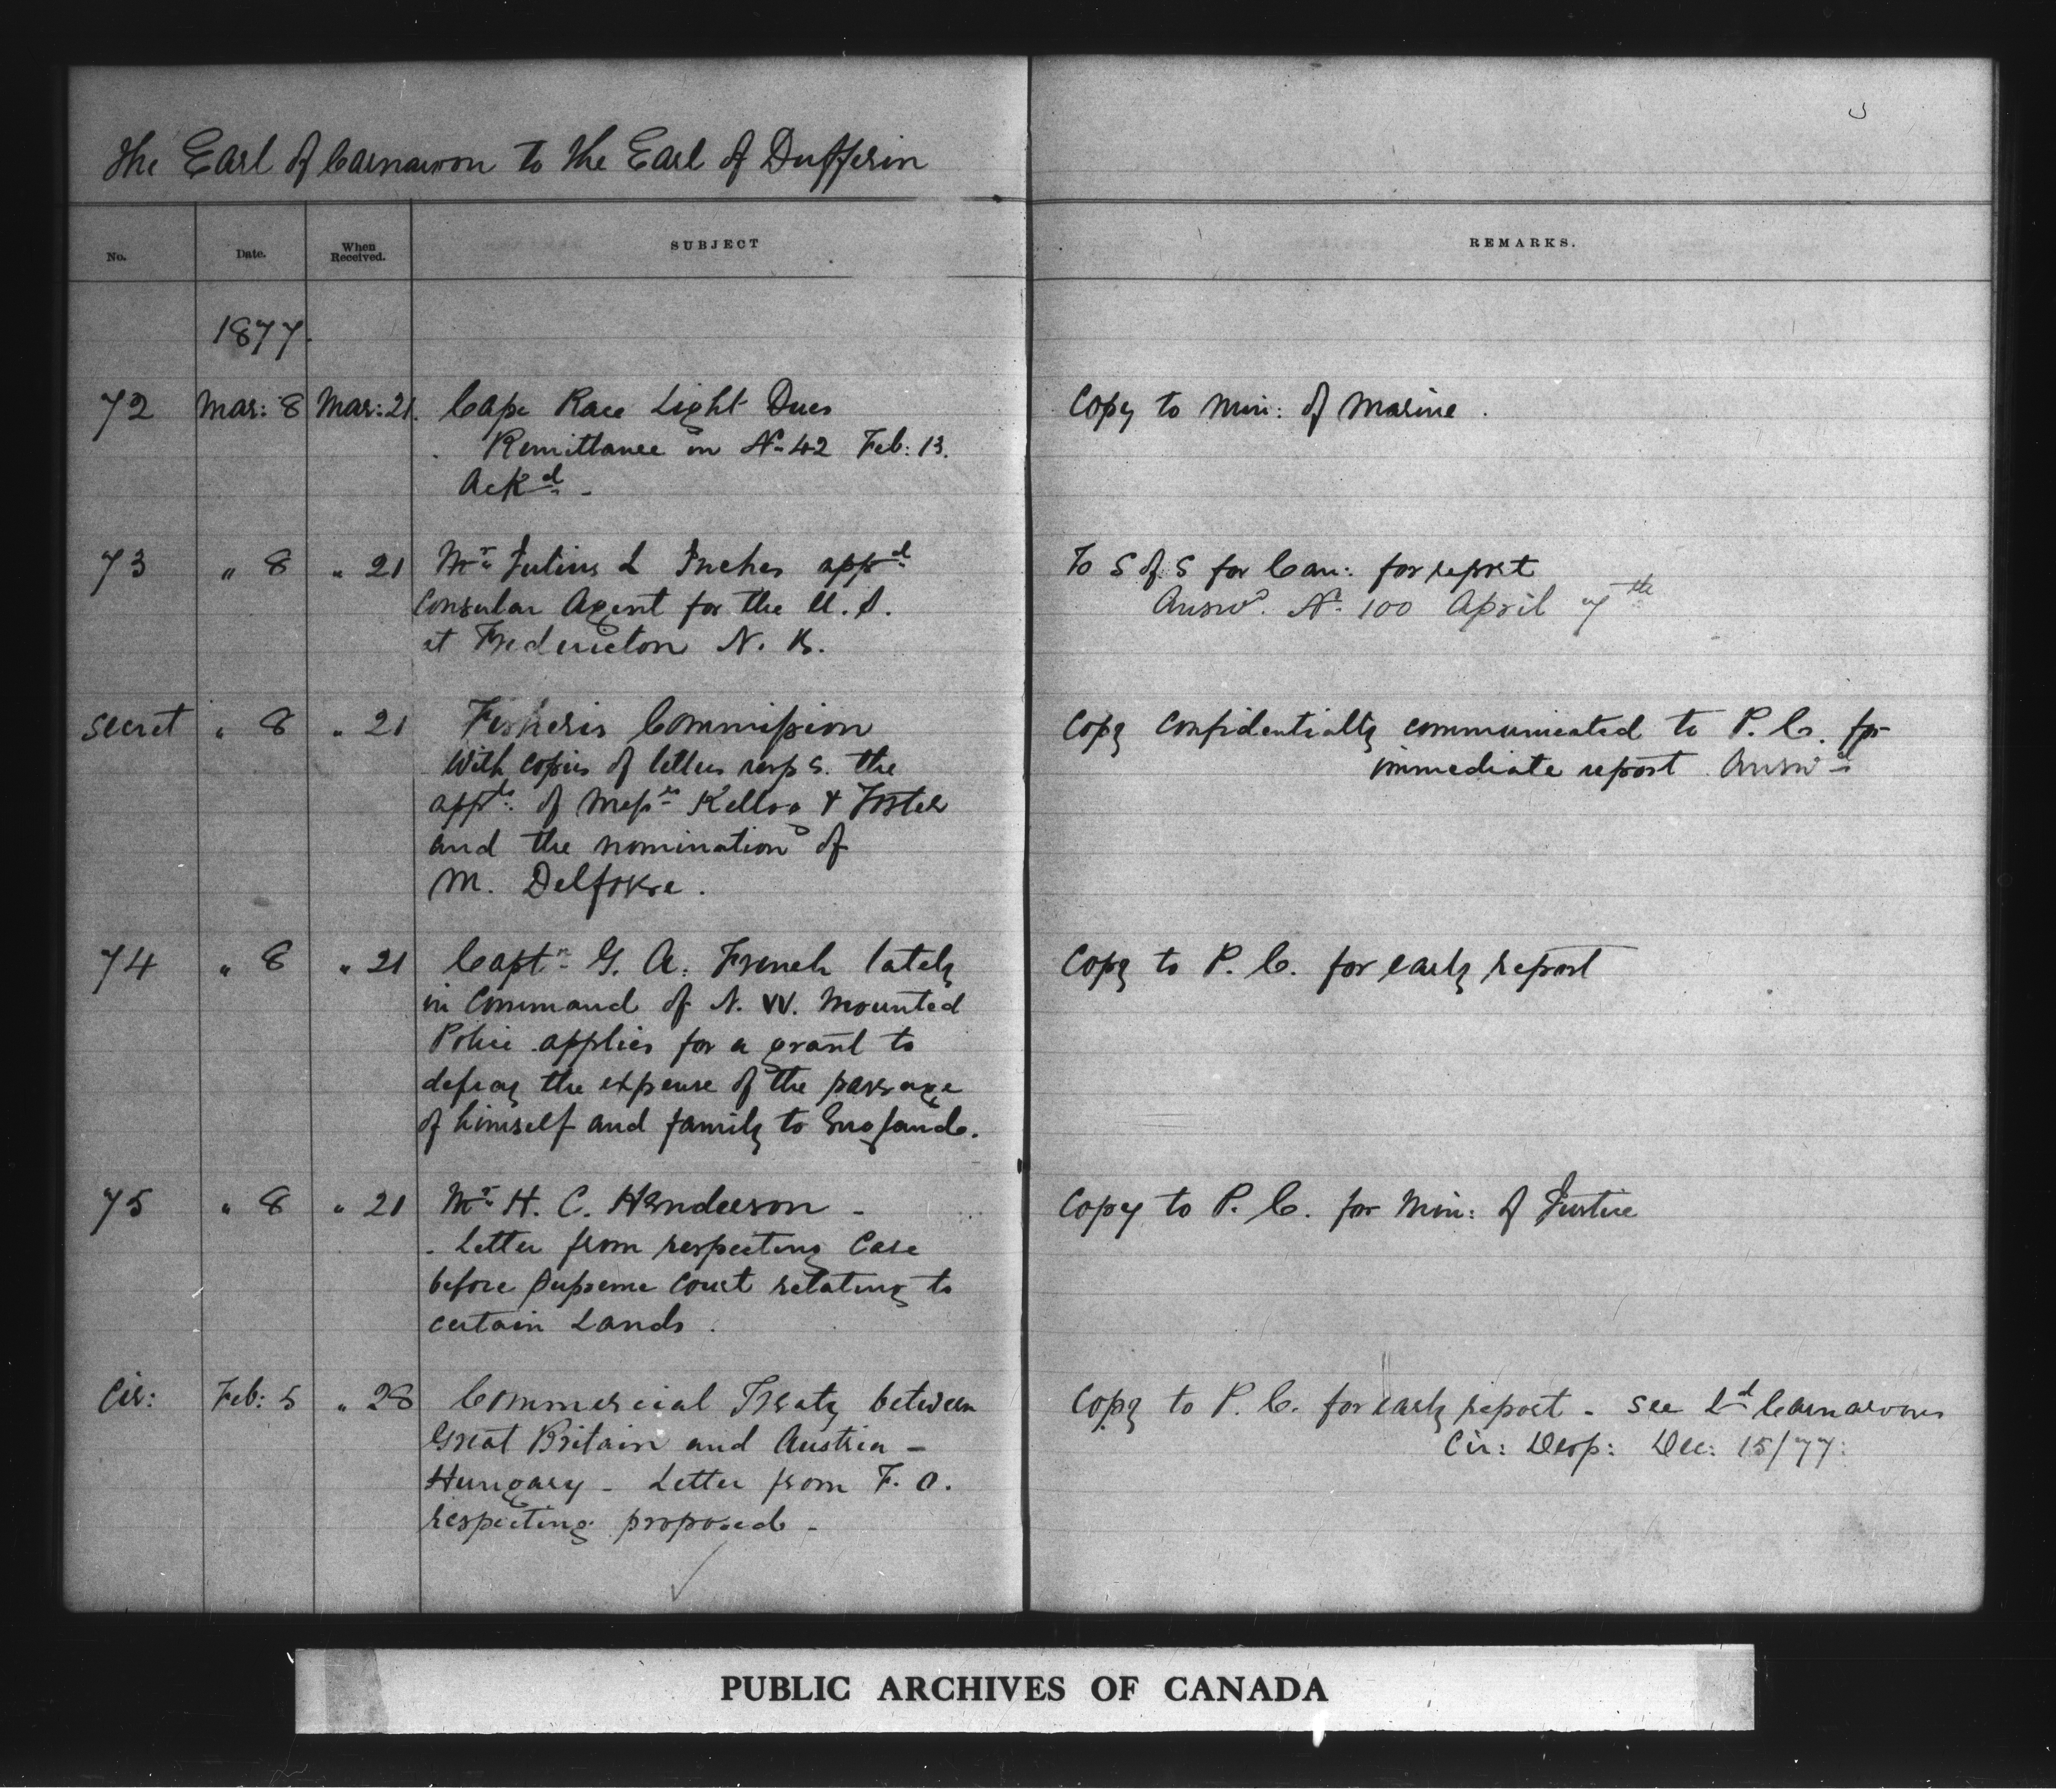 The Earl of Carnarvon to the Earl of Dufferin
No. Date. When Received. SUBJECT REMARKS.
1877.
72 Mar: 8 Mar: 21. Cape Race Light Dues Copy to Min: of Marine.
Remittance in No 42 Feb: 13.
Ackd -
73 " 8 " 21 Mr Julius L Inches appd To S of S for Can: for report
Consular Agent for the U.S. Answd. No 100 April 7th
at Fredericton N. B.
Secret " 8 " 21 Fisheries Commission Copy confidentially communicated to P. C. for
With copies of letters resps. the immediate report Answd
appts. of Messrs Kellog & Foster
and the nomination of
M. Delfosse.
74 " 8 " 21 Captn. G. A. French lately Copy to P. C. for early report
in Command of N. W. Mounted
Police applies for a grant to
defray the expense of the passage
of himself and family to England.
75 " 8 " 21 Mr H. C. Henderson - Copy to P. C. for Min: of Justice
. Letter from respecting Case
before Supreme Court relating to
certain Lands.
Cir: Feb: 5 " 28 Commercial Treaty between Copy to P. C. for early report - See Ld Carnarvons
Great Britain and Austria - Cir: Desp: Dec: 15/77:
Hungary - Letter from F. O.
respecting proposed -
PUBLIC ARCHIVES OF CANADA